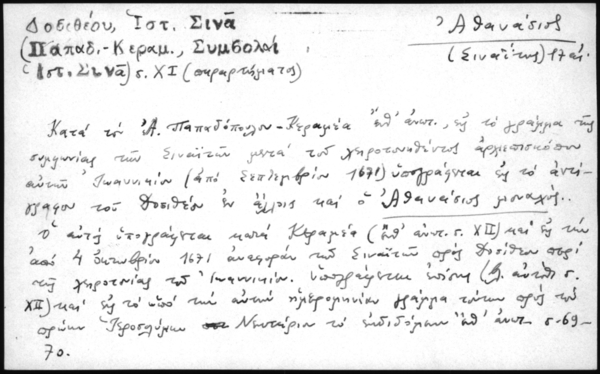 Δοσιθέου, Ἱστ. Σινᾶ
(Παπαδ.-Κεραμ., Συμβολαί
Ἱστ. Σινᾶ) σ. XI (παραρτήματος)
Ἀθανάσιος
(Σιναΐτης) 17 αἰ.
Κατά τόν Ἀ. Παπαδόπουλον-Κεραμέα ἔνθ' ἀνωτ., εἰς τό γράμμα τῆς
συμφωνίας τῶν Σιναϊτῶν μετά τοῦ χειροτονηθέντος ἀρχιεπισκόπου
αὐτῶν Ἰωαννικίου (ἀπό Σεπτεμβρίου 1671) ὑπογράφεται εἰς τό ἀντί-
γραφον τοῦ Δοσιθέου ἐν ἄλλοις καί ὁ Ἀθανάσιος μοναχός.
Ὁ αὐτός ὑπογράφεται κατά Κεραμέα (ἔνθ' ἀνωτ. σ. XII) καί εἰς τήν
ἀπό 4 ὀκτωβρίου 1671 ἀναφοράν τῶν Σιναϊτῶν πρός Δοσίθεον περί
τῆς χειροτονίας τοῦ Ἰωαννικίου. ὑπογράφεται ἐπίσης (αὐτόθι σ.
XII) καί εἰς τό ὑπό τήν αὐτήν ἡμερομηνίαν γράμμα τούτων πρός τόν
πρώην Ἱεροσολύμων Νεκτάριον τό ἐκδιδόμενον ἔνθ' ἀνωτ. σ. 69-
70.